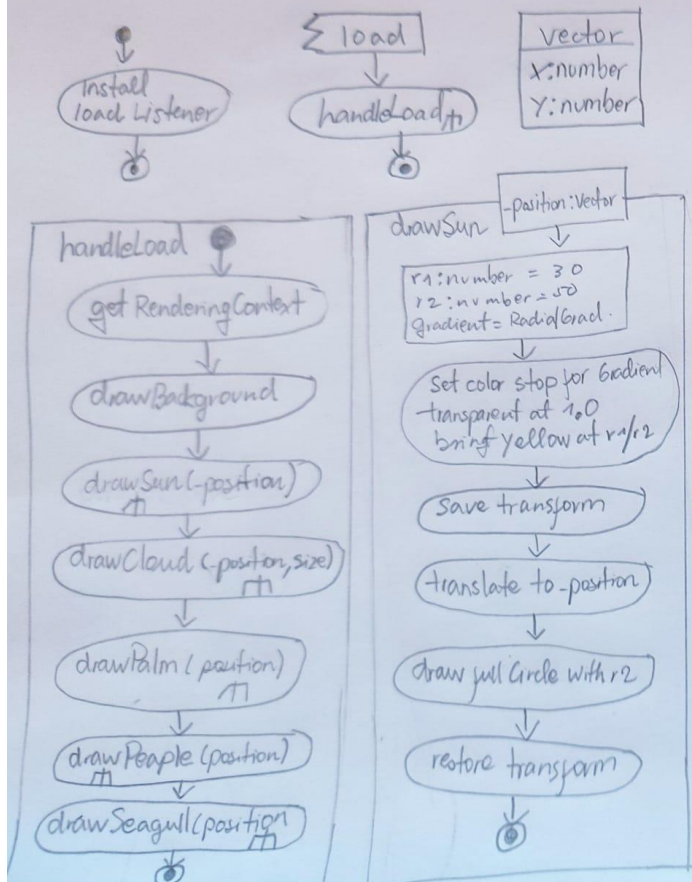 Install
load Listener
load
handleLoad
vector
x:number
y:number
handleLoad
getRenderingContext
drawBackground
drawSun(_position)
drawCloud(_position,size)
drawPalm(position)
drawPeaple(position)
drawSeagull(position
drawSun
_position:Vector
r1:number = 30
r2:number=50
gradient=RadialGrad.
Set color stop for Gradient
transparent at 1,0
yellow at r1/r2
save transform
translate to _position
draw full Circle with r2
restore transform